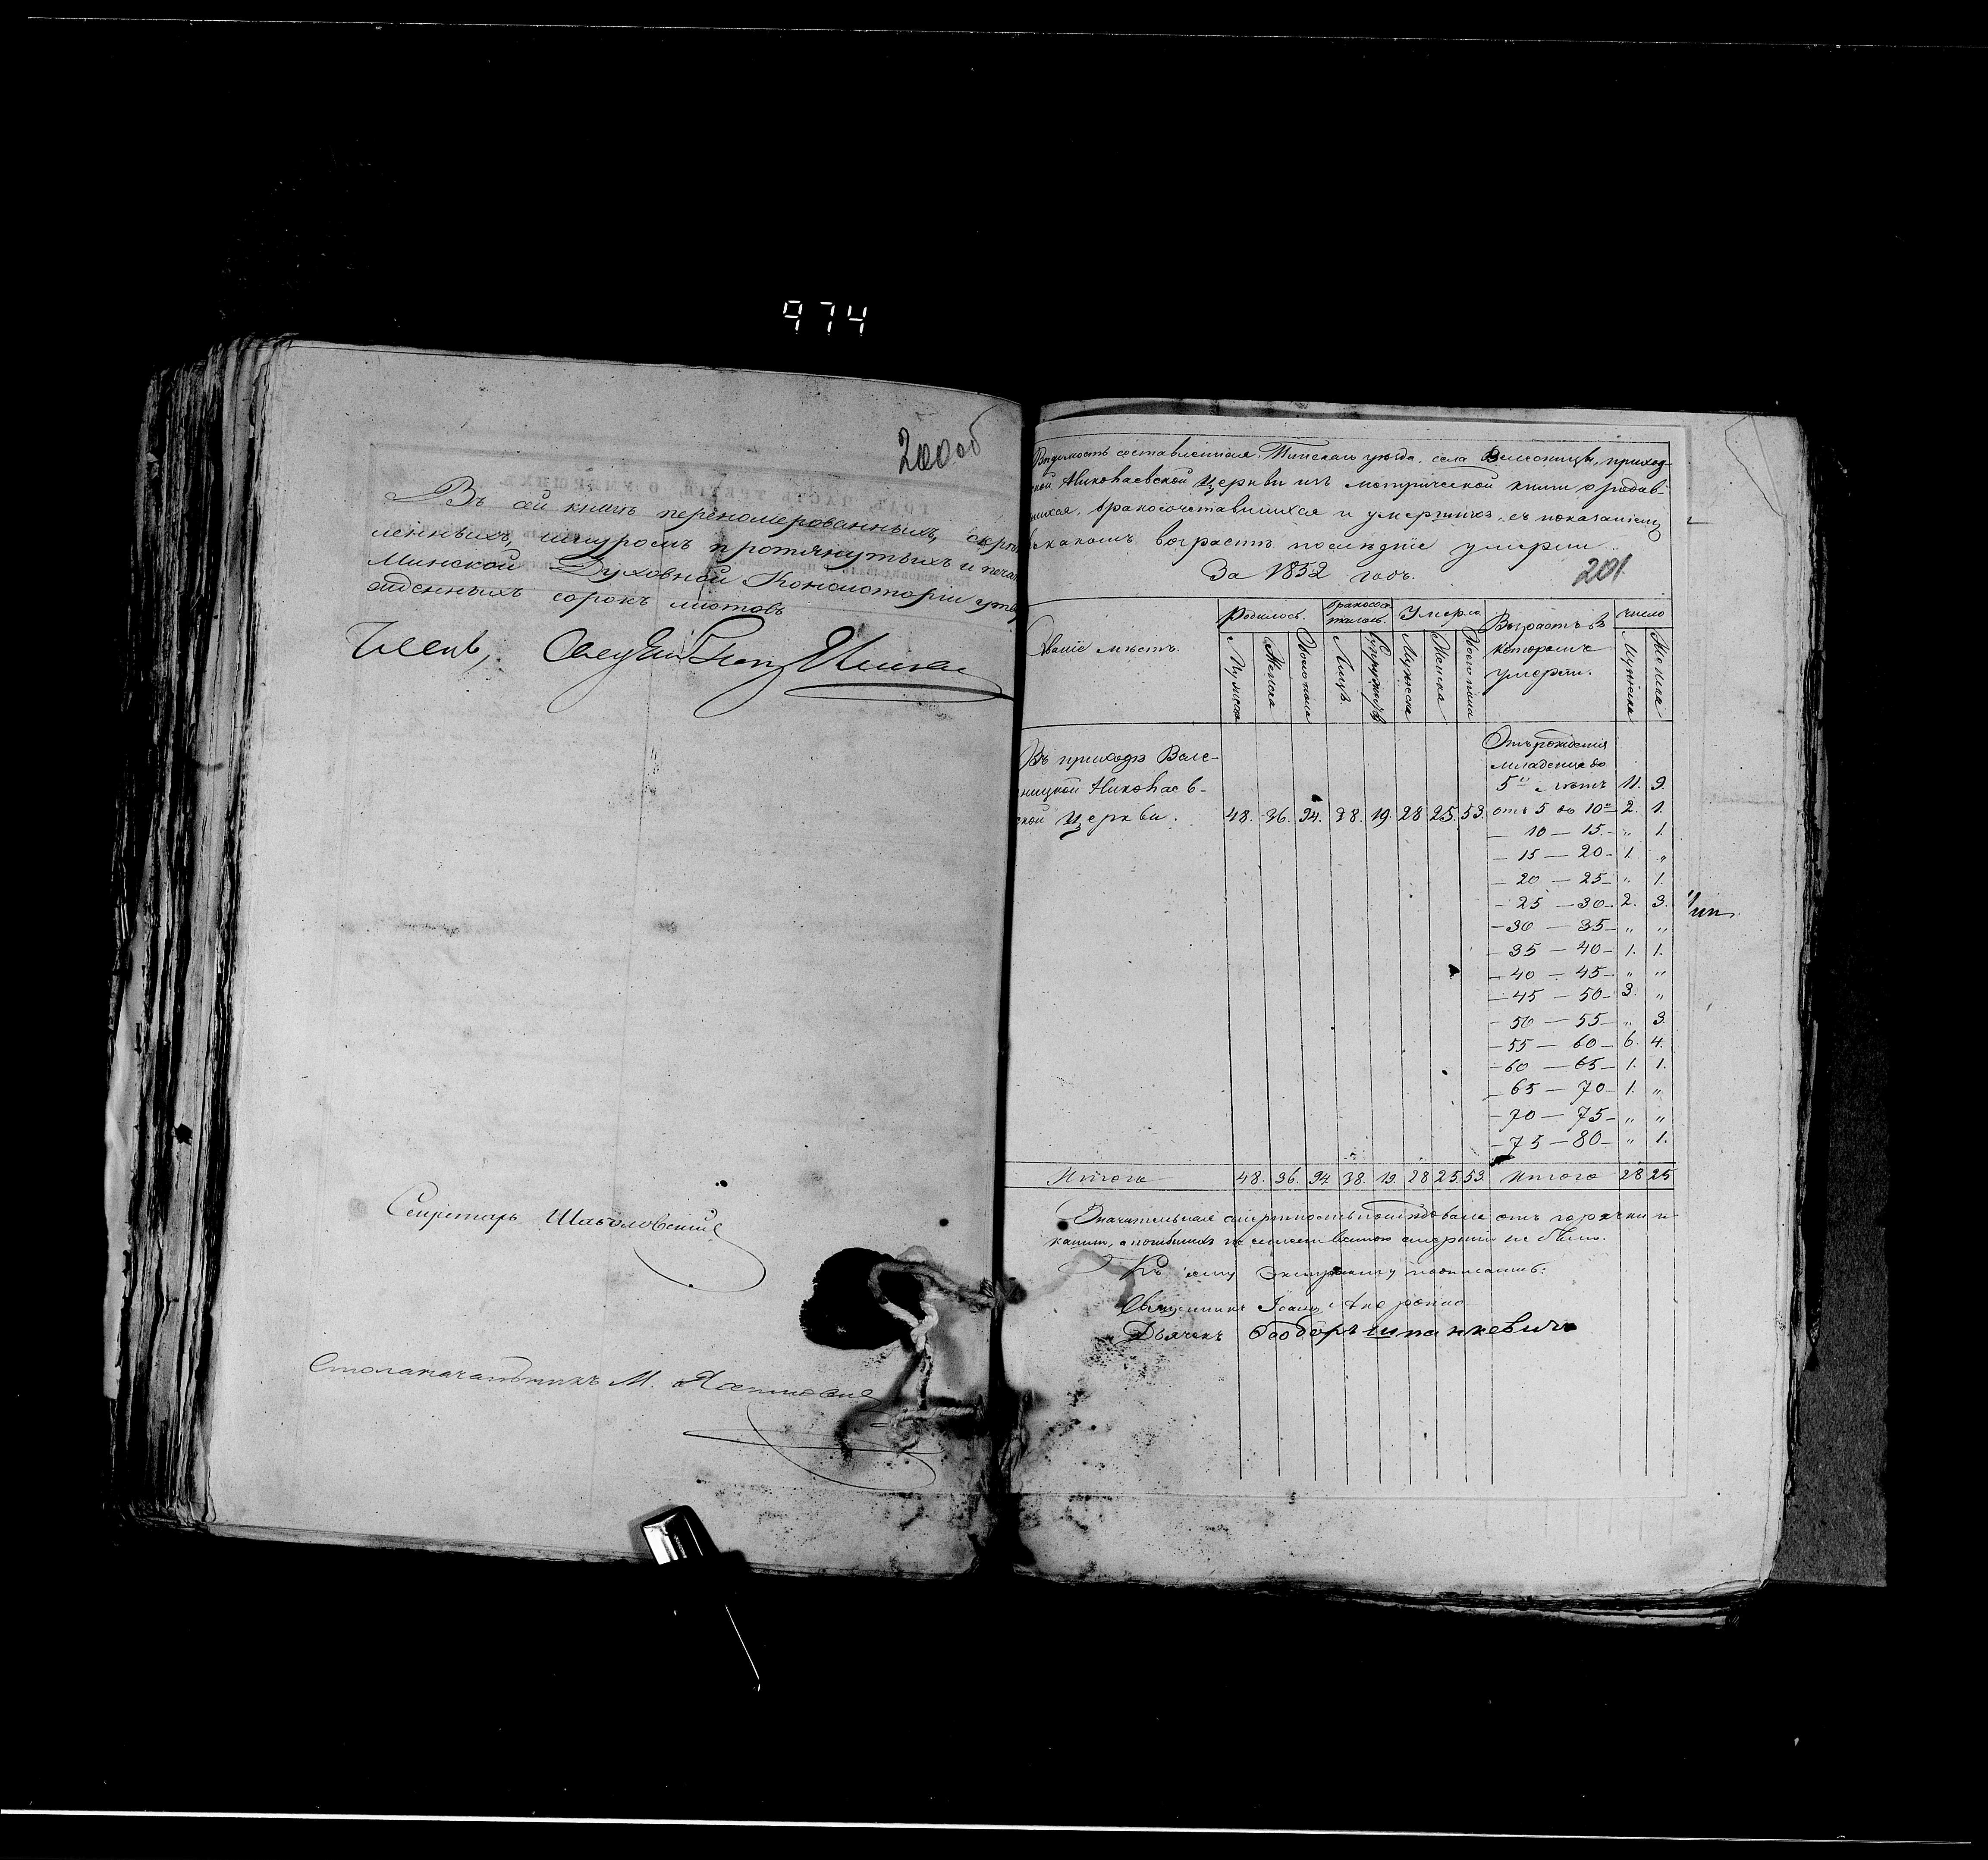 974
200об
Въ сей книгѣ переномерованныхъ, скрѣп
ленныхъ, шнуромъ протянутыхъ и печат
Минской Духовной Консисторіи утвер
жденныхъ сорокъ листовъ
Членъ,
Секретарь Шаболовскій
Столоначальникъ М.
Вѣдомость составленная Пинскаго уѣзда села Велесницы, приход-
ской Николаевской Церкви изъ метрической книги о родив-
шихся, бракосочетавшихся и умершихъ, съ показаніемъ
въ какомъ возрастѣ послѣдніе умерли
За 1852 годъ.
201
Званіе мѣстъ. Родилось. бракосоче-талось. Умерло Возрастъ въ которомъ умерли. число
Мужеска Женска Обоего пола Лицъ. Супружествъ Мужеска Женска Обоего пола Мужеска Женска
Въ приходѣ Веле-
сницкой Николаев-
ской Церкви. 48. 36. 94. 38. 19. 28 25. 53.
Отъ рожденія
младенца до
5ти лѣтъ 11. 9.
отъ 5 до 10ти 2. 1.
— 10 — 15. — „ 1.
— 15 — 20 — 1. „
— 20 — 25 — „ 1.
— 25 — 30 — 2. 3.
— 30 — 35 — „ „
— 35 — 40 — 1. 1.
— 40 — 45 — „ „
— 45 — 50 — 3. „
— 50 — 55 — „ 3.
— 55 — 60 — 6. 4.
— 60 — 65 — 1. 1.
— 65 — 70 — 1. „
— 70 — 75 — „ „
— 75 — 80 — „ 1.
Итого 48. 36. 94. 38. 19. 28 25. 53. Итого 28 25
Значительная смертность послѣдовала отъ горячки и
кашлю, а погибшихъ смертію не было.
Къ сему Экстракту подписались:
Священникъ Іоаннъ
Дьячекъ Ѳеодоръ Шпанкевичъ